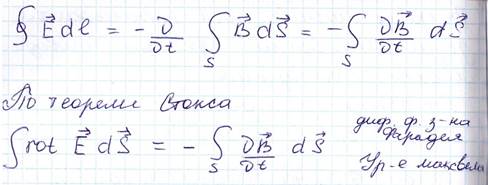 ∮ E⃗ dℓ = − ∂/∂t ∫_S B⃗ dS⃗ = − ∫_S ∂B⃗/∂t dS⃗
По теореме Стокса
∫ rot E⃗ dS⃗ = − ∫_S ∂B⃗/∂t dS⃗
диф. ф. з-на
Фарадея
Ур-е максвела